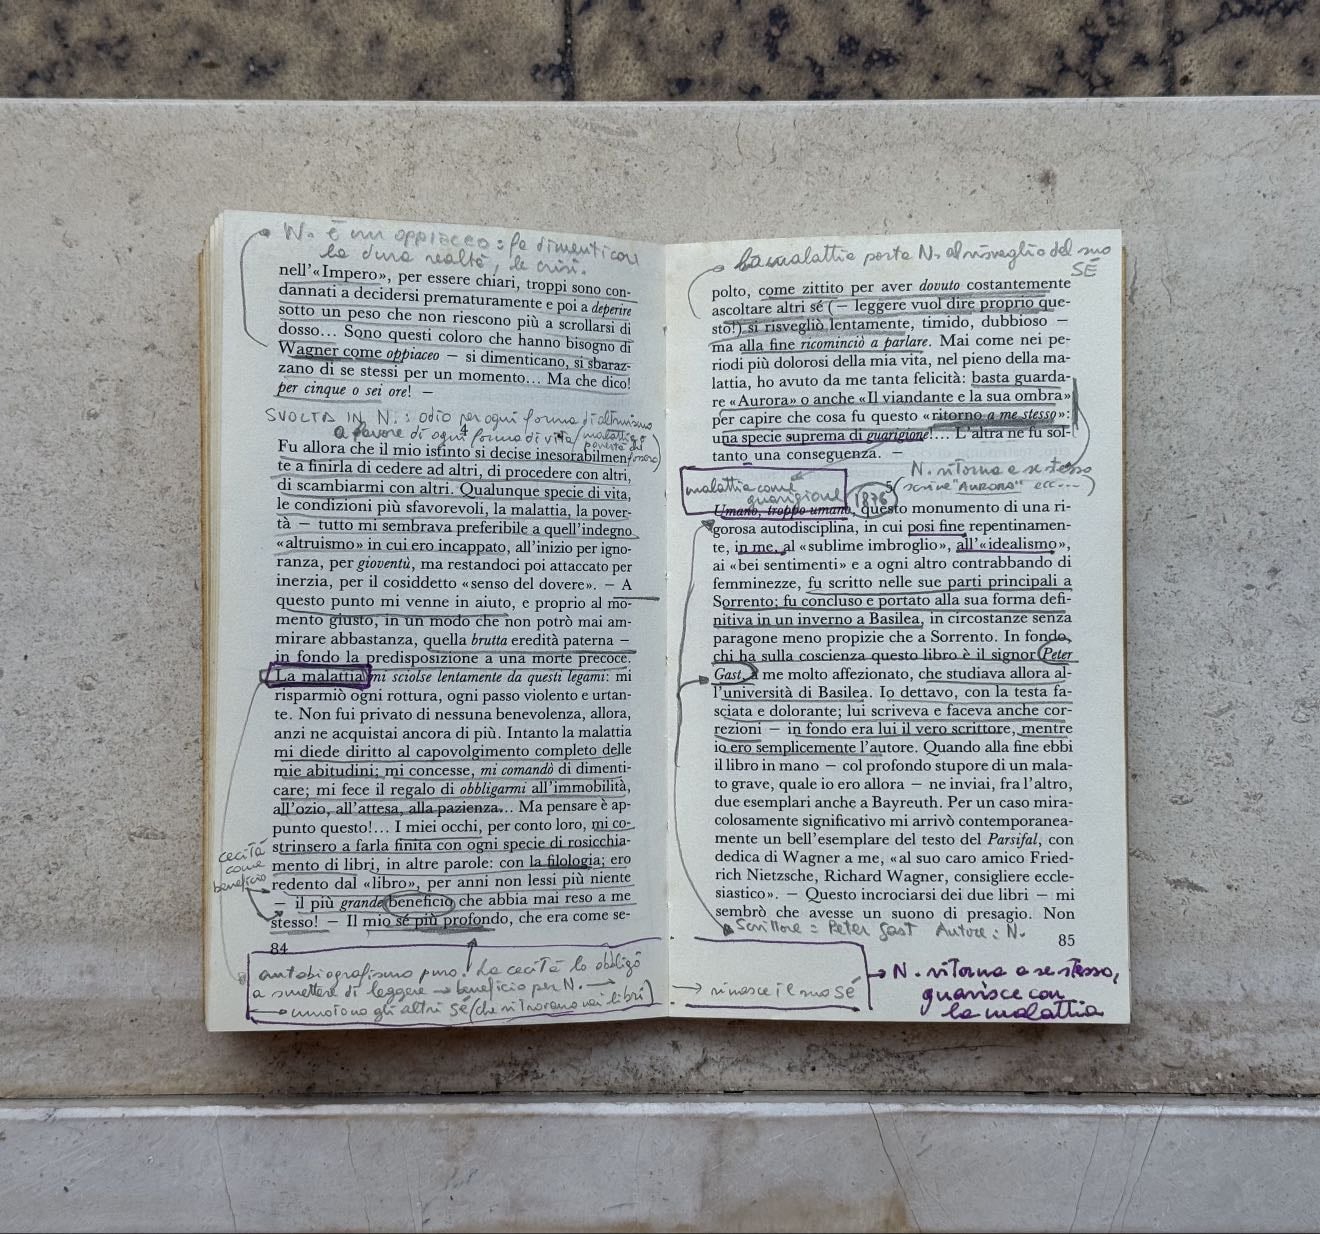 N. è un oppiaceo: fa dimenticare
la dura realtà, le crisi.
nell'«Impero», per essere chiari, troppi sono con-
dannati a decidersi prematuramente e poi a deperire
sotto un peso che non riescono più a scrollarsi di
dosso... Sono questi coloro che hanno bisogno di
Wagner come oppiaceo — si dimenticano, si sbaraz-
zano di se stessi per un momento... Ma che dico!
per cinque o sei ore! —
SVOLTA IN N.: odio per ogni forma di altruismo
a favore di ogni forma di vita (malattia
povertà che
fossero)
4
Fu allora che il mio istinto si decise inesorabilmen-
te a finirla di cedere ad altri, di procedere con altri,
di scambiarmi con altri. Qualunque specie di vita,
le condizioni più sfavorevoli, la malattia, la pover-
tà — tutto mi sembrava preferibile a quell'indegno
«altruismo» in cui ero incappato, all'inizio per igno-
ranza, per gioventù, ma restandoci poi attaccato per
inerzia, per il cosiddetto «senso del dovere». — A
questo punto mi venne in aiuto, e proprio al mo-
mento giusto, in un modo che non potrò mai am-
mirare abbastanza, quella brutta eredità paterna —
in fondo la predisposizione a una morte precoce.
La malattia mi sciolse lentamente da questi legami: mi
risparmiò ogni rottura, ogni passo violento e urtan-
te. Non fui privato di nessuna benevolenza, allora,
anzi ne acquistai ancora di più. Intanto la malattia
mi diede diritto al capovolgimento completo delle
mie abitudini; mi concesse, mi comandò di dimenti-
care; mi fece il regalo di obbligarmi all'immobilità,
all'ozio, all'attesa, alla pazienza... Ma pensare è ap-
punto questo!... I miei occhi, per conto loro, mi co-
strinsero a farla finita con ogni specie di rosicchia-
mento di libri, in altre parole: con la filologia; ero
redento dal «libro», per anni non lessi più niente
— il più grande beneficio che abbia mai reso a me
stesso! — Il mio sé più profondo, che era come se-
cecità
come
beneficio
84
autobiografismo puro! La cecità lo obbligò
a smettere di leggere → beneficio per N. →
→ muoiono gli altri sé (che si trovano nei libri)
La malattia porta N. al risveglio del suo
SÉ
polto, come zittito per aver dovuto costantemente
ascoltare altri sé (— leggere vuol dire proprio que-
sto!) si risvegliò lentamente, timido, dubbioso —
ma alla fine ricominciò a parlare. Mai come nei pe-
riodi più dolorosi della mia vita, nel pieno della ma-
lattia, ho avuto da me tanta felicità: basta guarda-
re «Aurora» o anche «Il viandante e la sua ombra»
per capire che cosa fu questo «ritorno a me stesso»:
una specie suprema di guarigione!... L'altra ne fu sol-
tanto una conseguenza. —
N. ritorna a se stesso
(scrive "AURORA" ecc...)
malattia come
guarigione
5
1876
Umano, troppo umano, questo monumento di una ri-
gorosa autodisciplina, in cui posi fine repentinamen-
te, in me, al «sublime imbroglio», all'«idealismo»,
ai «bei sentimenti» e a ogni altro contrabbando di
femminezze, fu scritto nelle sue parti principali a
Sorrento; fu concluso e portato alla sua forma defi-
nitiva in un inverno a Basilea, in circostanze senza
paragone meno propizie che a Sorrento. In fondo,
chi ha sulla coscienza questo libro è il signor Peter
Gast, a me molto affezionato, che studiava allora al-
l'università di Basilea. Io dettavo, con la testa fa-
sciata e dolorante; lui scriveva e faceva anche cor-
rezioni — in fondo era lui il vero scrittore, mentre
io ero semplicemente l'autore. Quando alla fine ebbi
il libro in mano — col profondo stupore di un mala-
to grave, quale io ero allora — ne inviai, fra l'altro,
due esemplari anche a Bayreuth. Per un caso mira-
colosamente significativo mi arrivò contemporanea-
mente un bell'esemplare del testo del Parsifal, con
dedica di Wagner a me, «al suo caro amico Fried-
rich Nietzsche, Richard Wagner, consigliere eccle-
siastico». — Questo incrociarsi dei due libri — mi
sembrò che avesse un suono di presagio. Non
Scrittore = Peter Gast Autore: N.
85
→ rinasce il suo sé
→ N. ritorna a se stesso,
guarisce con
la malattia